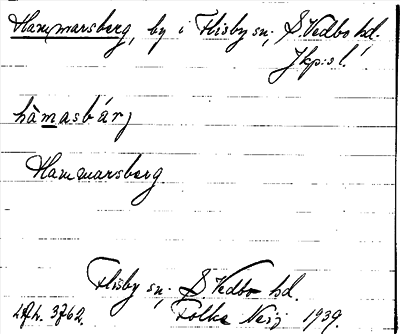 Hammarsberg, by i Flisby sn; S. Vedbo hd.
Jkp:s l.
hàmasbárj
Hammarsberg
Flisby sn; S Vedbo hd.
3762. Folke 1939